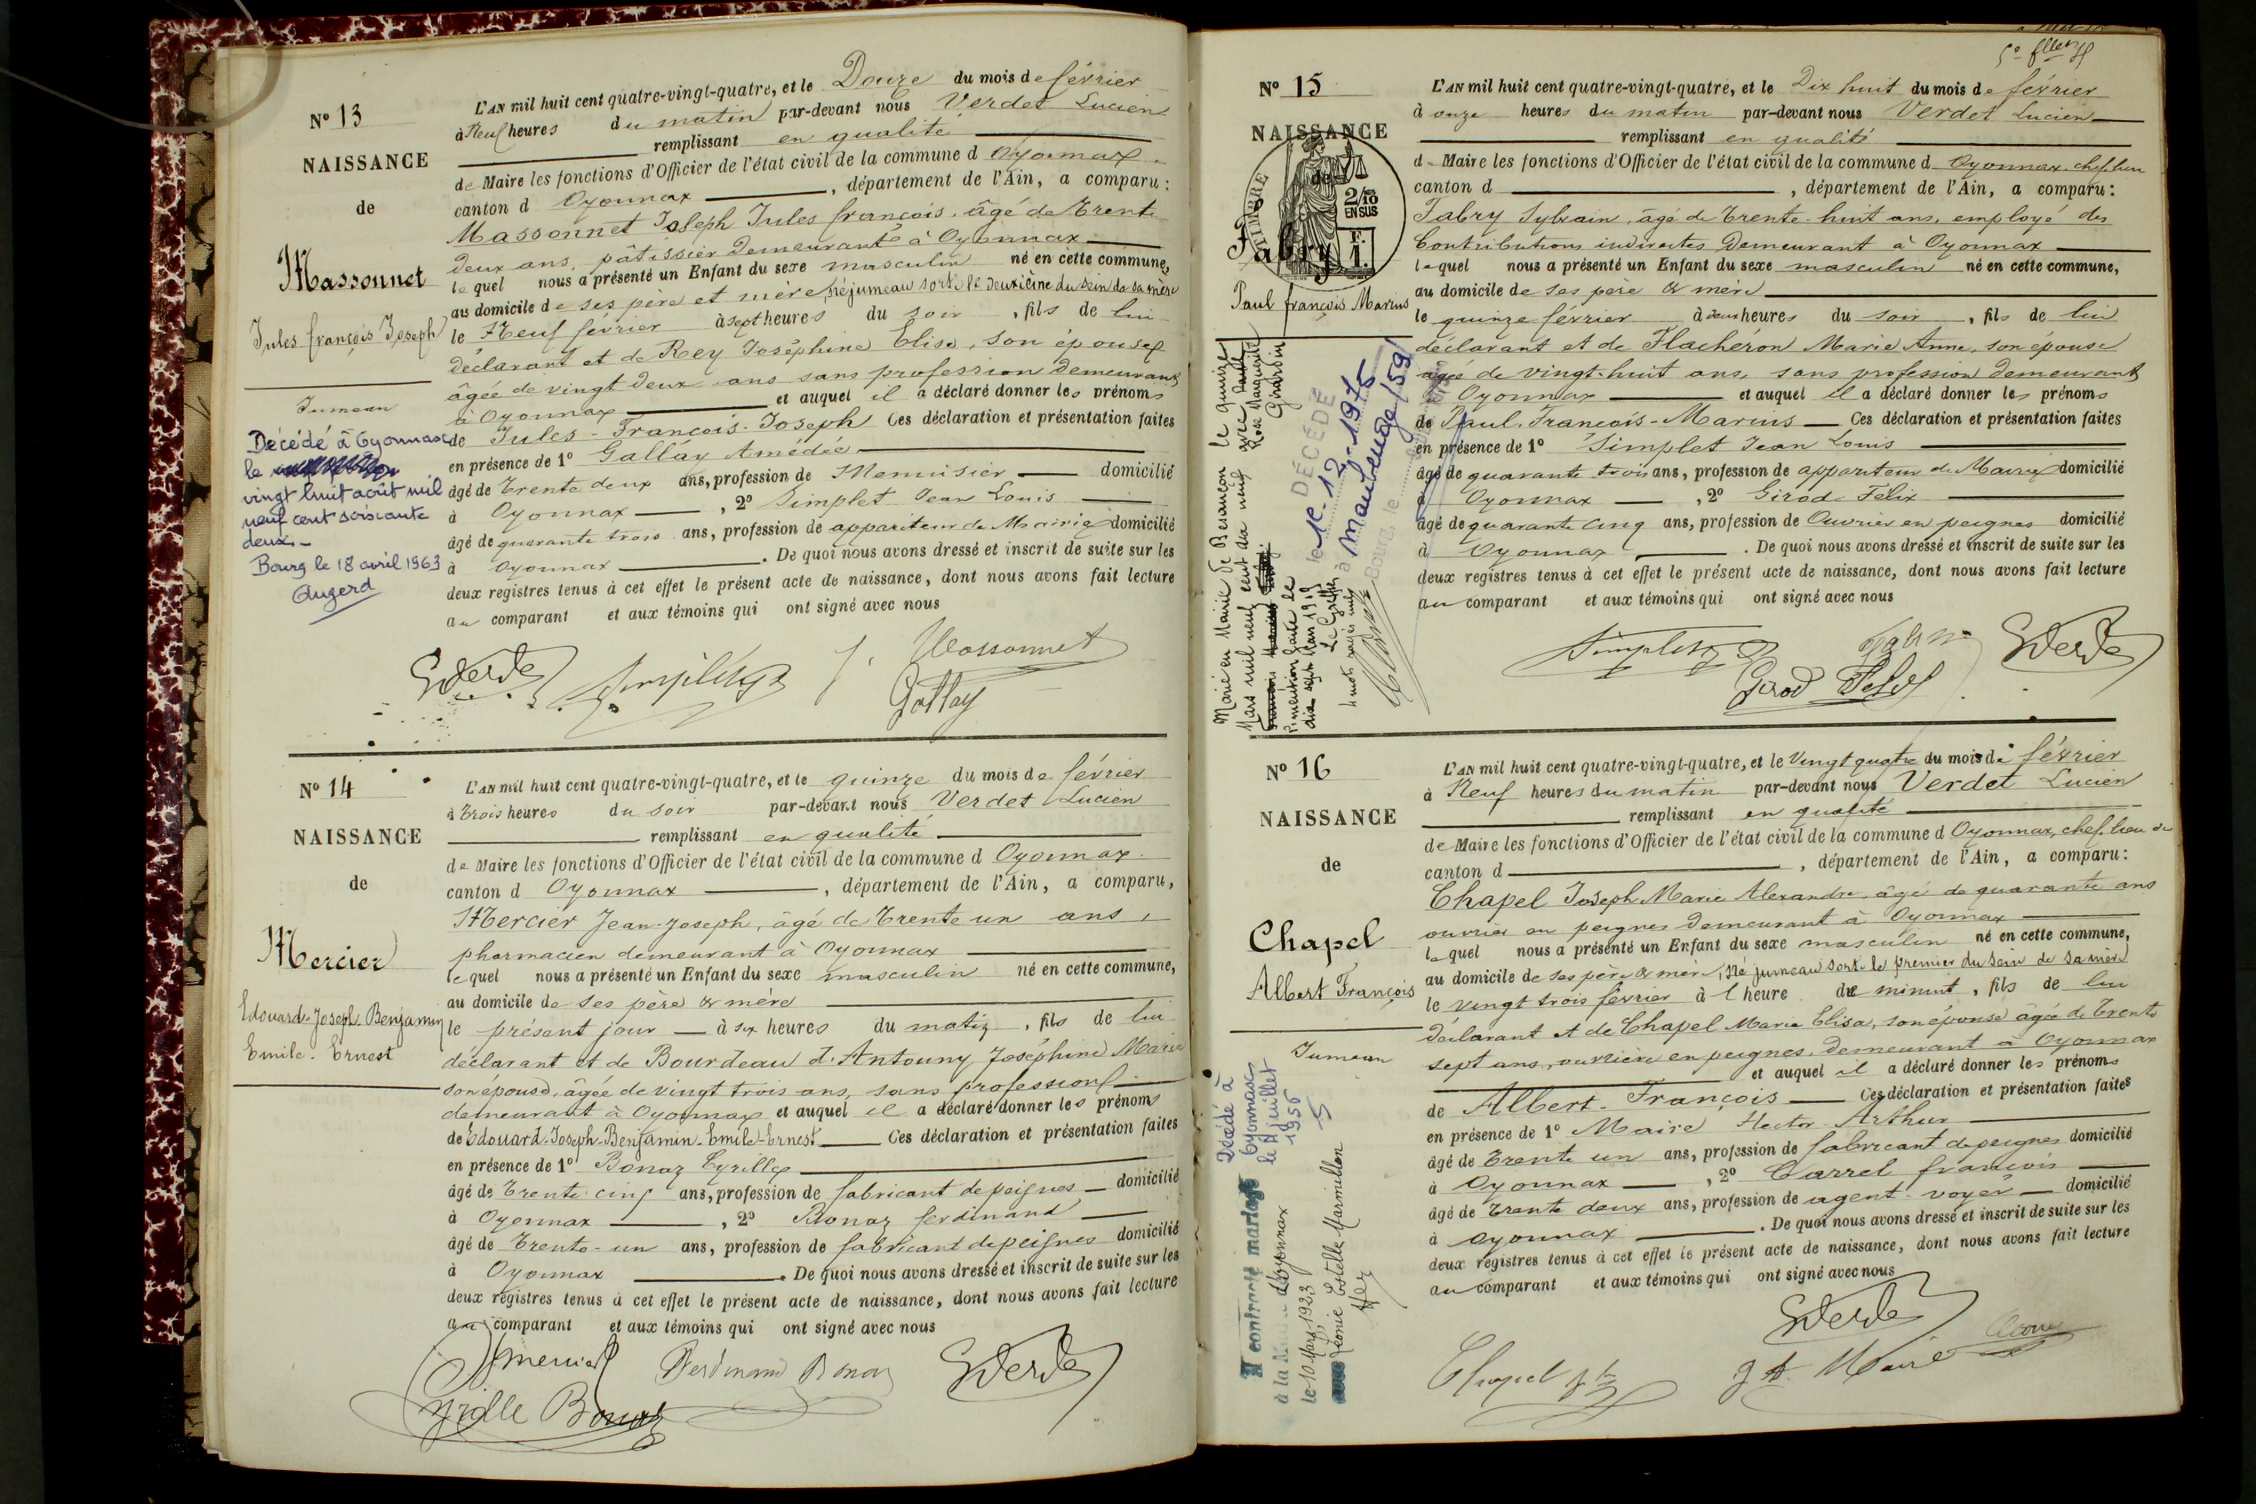 Nº 13
NAISSANCE
de
Massonnet
Jules françois Joseph
Jumeau
Décédé à Oyonnax
le
vingt huit août mil
neuf cent soixante
deux.-
Bourg le 18 avril 1963
L'AN mil huit cent quatre-vingt-quatre, et le Douze du mois de février
à Neuf heures du matin par-devant nous Verdet Lucien
remplissant en qualité
de Maire les fonctions d'Officier de l'état civil de la commune d Oyonnax
canton d Oyonnax, département de l'Ain, a comparu:
Massonnet Joseph Jules françois, âgé de trente
deux ans, pâtissier demeurant à Oyonnax
lequel nous a présenté un Enfant du sexe masculin né en cette commune,
au domicile de ses père et mère, né jumeau sorti le deuxième du sein de sa mère
le Neuf février à sept heures du soir, fils de lui
déclarant et de Rey Joséphine Elisa, son épouse
âgée de vingt deux ans sans profession demeurant
à Oyonnax et auquel il a déclaré donner les prénoms
de Jules-François-Joseph Ces déclaration et présentation faites
en présence de 1º Gallay Amédée
âgé de trente deux ans, profession de Menuisier domicilié
à Oyonnax, 2º Simplet Jean Louis
âgé de quarante trois ans, profession de appariteur de Mairie domicilié
à Oyonnax. De quoi nous avons dressé et inscrit de suite sur les
deux registres tenus à cet effet le présent acte de naissance, dont nous avons fait lecture
au comparant et aux témoins qui ont signé avec nous
Massonnet
Gallay
Nº 14
NAISSANCE
de
Mercier
Edouard-Joseph-Benjamin
Emile-Ernest
L'AN mil huit cent quatre-vingt-quatre, et le quinze du mois de février
à trois heures du soir par-devant nous Verdet Lucien
remplissant en qualité
de Maire les fonctions d'Officier de l'état civil de la commune d Oyonnax
canton d Oyonnax, département de l'Ain, a comparu,
Mercier Jean-Joseph, âgé de trente un ans,
pharmacien demeurant à Oyonnax
lequel nous a présenté un Enfant du sexe masculin né en cette commune,
au domicile de ses père & mère
le présent jour à six heures du matin, fils de lui
déclarant et de Bourdeau d'Antouny Joséphine Marie
son épouse, âgée de vingt trois ans, sans profession
demeurant à Oyonnax et auquel il a déclaré donner les prénoms
de Edouard-Joseph-Benjamin-Emile-Ernest Ces déclaration et présentation faites
en présence de 1º Bonaz Cyrille
âgé de trente cinq ans, profession de fabricant de peignes domicilié
à Oyonnax, 2º Bonaz ferdinand
âgé de trente-un ans, profession de fabricant de peignes domicilié
à Oyonnax. De quoi nous avons dressé et inscrit de suite sur les
deux registres tenus à cet effet le présent acte de naissance, dont nous avons fait lecture
au comparant et aux témoins qui ont signé avec nous
Ferdinand Bonaz
Cyrille Bonaz
Nº 15
NAISSANCE
de
TIMBRE
2/10
EN SUS
F.
1.
Fabry
Paul françois Marius
Marié en Mairie de Besançon le quinze
Mars mil neuf cent dix neuf avec
Rose Marguerite
Girardin
DÉCÉDÉ
le 1e.12.1975
à Maubeuge /59/
Bourg, le
L'AN mil huit cent quatre-vingt-quatre, et le Dix huit du mois de février
à onze heures du matin par-devant nous Verdet Lucien
remplissant en qualité
de Maire les fonctions d'Officier de l'état civil de la commune d Oyonnax, chef-lieu
canton d, département de l'Ain, a comparu:
Fabry Sylvain, âgé de trente-huit ans, employé des
Contributions indirectes demeurant à Oyonnax
lequel nous a présenté un Enfant du sexe masculin né en cette commune,
au domicile de ses père & mère
le quinze février à deux heures du soir, fils de lui
déclarant et de Flachéron Marie Anne, son épouse
âgée de vingt-huit ans, sans profession demeurant
à Oyonnax et auquel il a déclaré donner les prénoms
de Paul-François-Marius Ces déclaration et présentation faites
en présence de 1º Simplet Jean Louis
âgé de quarante trois ans, profession de appariteur de Mairie domicilié
à Oyonnax, 2º Girod Félix
âgé de quarante cinq ans, profession de Ouvrier en peignes domicilié
à Oyonnax. De quoi nous avons dressé et inscrit de suite sur les
deux registres tenus à cet effet le présent acte de naissance, dont nous avons fait lecture
au comparant et aux témoins qui ont signé avec nous
Girod Félix
Nº 16
NAISSANCE
de
Chapel
Albert François
Jumeau
Décédé à
Oyonnax
le 11 juillet
1956
A contracté mariage
à la Mairie d'Oyonnax
le 10 Mars 1923
avec Léonie Estelle Marmillon
L'AN mil huit cent quatre-vingt-quatre, et le Vingt quatre du mois de février
à Neuf heures du matin par-devant nous Verdet Lucien
remplissant en qualité
de Maire les fonctions d'Officier de l'état civil de la commune d Oyonnax, chef-lieu de
canton d, département de l'Ain, a comparu:
Chapel Joseph Marie Alexandre, âgé de quarante ans
ouvrier en peignes demeurant à Oyonnax
lequel nous a présenté un Enfant du sexe masculin né en cette commune,
au domicile de ses père & mère, né jumeau sorti le premier du sein de sa mère
le vingt trois février à l heure de minuit, fils de lui
déclarant et de Chapel Marie Elisa, son épouse âgée de trente
sept ans, ouvrière en peignes, demeurant à Oyonnax
et auquel il a déclaré donner les prénoms
de Albert-François Ces déclaration et présentation faites
en présence de 1º Maire Hector Arthur
âgé de trente un ans, profession de fabricant de peignes domicilié
à Oyonnax, 2º Carrel françois
âgé de trente deux ans, profession de agent-voyer domicilié
à Oyonnax. De quoi nous avons dressé et inscrit de suite sur les
deux registres tenus à cet effet le présent acte de naissance, dont nous avons fait lecture
au comparant et aux témoins qui ont signé avec nous